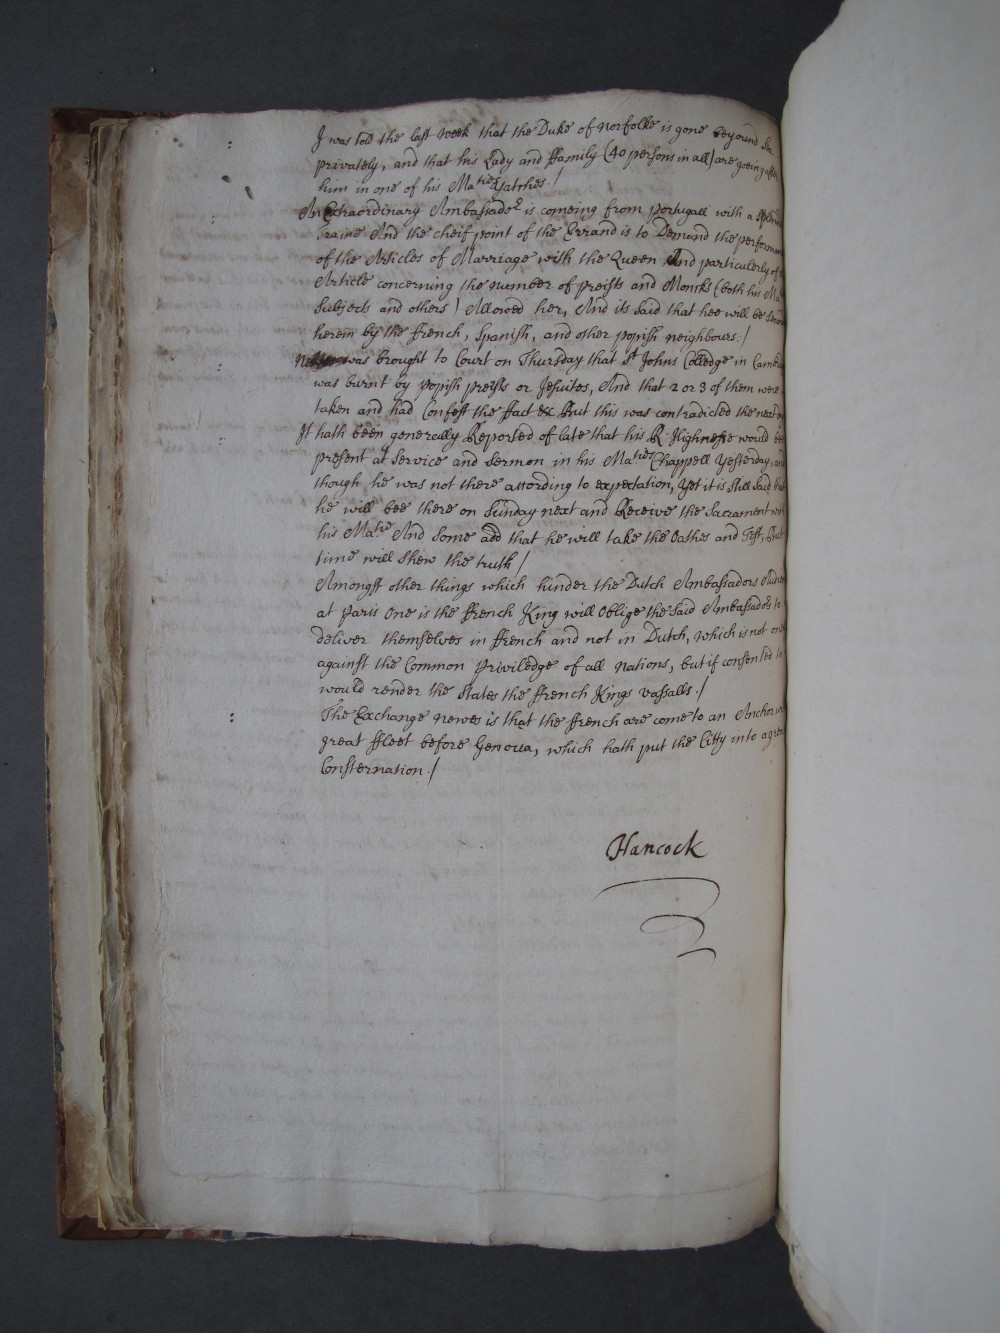 I was told the last week that the Duke of Norfolke is gone beyound Sea
privately, and that his Lady and ffamily (40 persons in all) are goeing after
him in one of his Ma:ties Yatches./
An Extraordinary Ambassador is comeing from Portugall with a Splendid
Traine And the cheif point of the Errand is to Demand the performance
of the Articles of Marriage with the Queen, And particulerly of
Article concerning the number of preists and Monks (both his Ma
Subjects and others) Allowed her, And its said that hee will be Second
herein by the ffrench, Spanish, and other popish neighbours:/
was brought to Court on Thursday that St Johns Colledge in Cambri
was burnt by popish preists or Jesuites, And that 2 or 3 of them were
taken and had Confest the ffact &c But this was contradicted the next
It hath been generally Reported of late that his R: Highnesse would bee
present at Service and Sermon in his Ma:ties Chappell Yesterday, and
though he was not there according to expectation, Yet it is still said that
he will bee there on Sunday next and Receive the Sacrament with
his Ma:tie And Some add that he will take the Oathes and Test, But
time will shew the truth/
Amongst other things which hinder the Dutch Ambassadors
at Paris One is the ffrench King will Oblige the said Ambassadors to
deliver themselves in ffrench and not in Dutch, which is not on
against the Common Priviledge of all Nations, but if consented to
would render the States the ffrench Kings vassalls./
The Exchange newes is that the ffrench are come to an Anchor
great ffleet before Genoua, which hath put the Citty into a great
Consternation./
Hancock